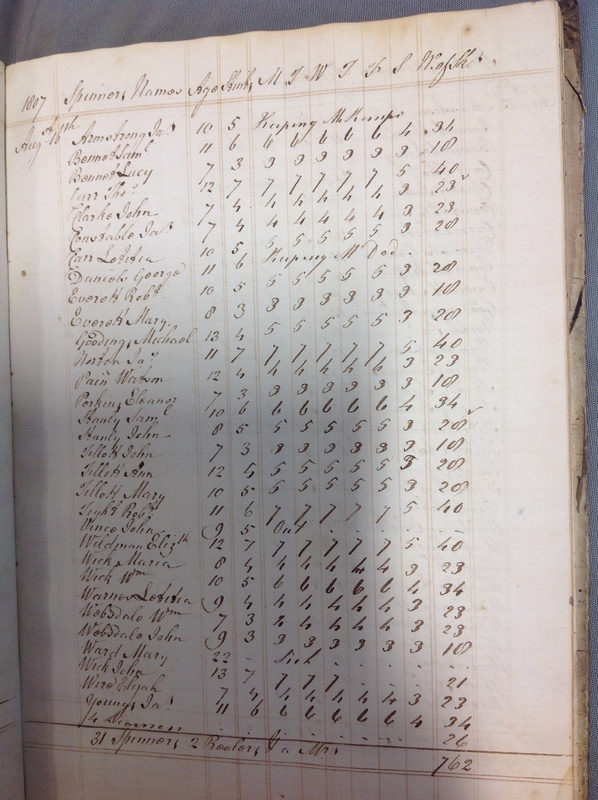 1807 Spinners Names Age Stint M T W T F S N. of Sk.s
Aug.st 16th Armstrong Ja.s 10 5 Keeping Mr Kemps
Bennet Sam.l 11 6 6 6 6 6 6 4 34
Bennet Lucy 7 3 3 3 3 3 3 3 18
Carr Tho.s 12 7 7 7 7 7 7 5 40
Clarke John 7 4 4 4 4 4 4 3 23
Constable Ja.s 7 4 4 4 4 4 4 3 23
Carr Letitia 10 5 5 5 5 5 5 3 28
Daniels George 11 6 Keeping Mr Dod
Everett Rob.t 10 5 5 5 5 5 5 3 28
Everett Mary 8 3 3 3 3 3 3 3 18
Gooding Michael 13 4 5 5 5 5 5 3 28
Norton Ja.s 11 7 7 7 7 7 7 5 40
Pain Watson 12 4 4 4 4 4 4 3 23
Perkins Eleanor 7 3 3 3 3 3 3 3 18
Stanly Sam.l 10 6 6 6 6 6 6 4 34
Stanly John 8 5 5 5 5 5 5 3 28
Tillott John 7 3 3 3 3 3 3 3 18
Tillott Ann 12 5 5 5 5 5 5 3 28
Tillott Mary 10 5 5 5 5 5 5 3 28
Tight Rob.t 11 6 7 7 7 7 7 5 40
Vince John 9 5 Out
Wildman Eliz.th 12 7 7 7 7 7 7 5 40
Wick Maria 8 4 4 4 4 4 4 3 23
Wick Wm 10 5 6 6 6 6 6 4 34
Warner Letitia 9 4 4 4 4 4 4 3 23
Websdale Wm 7 3 4 4 4 4 4 3 23
Websdale John 9 3 3 3 3 3 3 3 18
Ward Mary 22 - Sick
Wick John 13 7 7 7 7 21
Wire Elijah 7 4 4 4 4 4 4 3 23
Young Ja.s 11 6 6 6 6 6 6 4 34
4 Learners 26
31 Spinners 2 Reelers & a Mrs
762